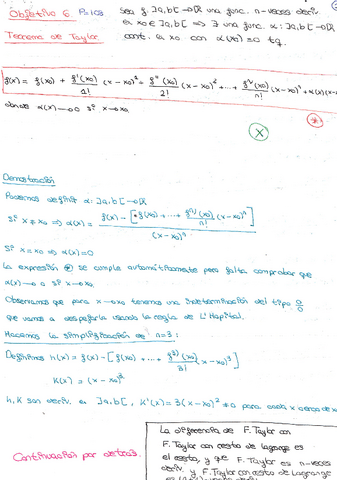 Objetivo 6. P=103 Sea f: ]a,b[→ℝ una func. n-veces deriv.
en x0∈]a,b[ ⇒ ∃ una func. α: ]a,b[→ℝ
Teorema de Taylor cont. en x0 con α(x0)=0 tq.
f(x) = f(x0) + f'(x0)/1! (x-x0)¹ + f''(x0)/2! (x-x0)² + ... + fⁿ(x0)/n! (x-x0)ⁿ + α(x)(x-x
donde α(x)→0 si x→x0.
*
X
Demostración
Podemos definir α: ]a,b[→ℝ
Si x≠x0 ⇒ α(x) = f(x) - [f(x0) + ... + fⁿ⁾(x0)/n! (x-x0)ⁿ] / (x-x0)ⁿ
Si x=x0 ⇒ α(x)=0
La expresión * se cumple automáticamente pero falta comprobar que
α(x)→0 si x→x0.
Observamos que para x→x0 tenemos una indeterminación del tipo 0/0
que vamos a despejarla usando la regla de L'Hopital.
Hacemos la simplificación de n=3:
Definimos h(x) = f(x) - [f(x0) + ... + f³⁾(x0)/3! (x-x0)³]
K(x) = (x-x0)³
h, K son deriv. en ]a,b[, K'(x) = 3(x-x0)² ≠0 para cada x cerca de x0
Continuación por detrás.
La diferencia de F. Taylor con
F. Taylor con resto de Lagrange es
el resto, y que F. Taylor es n-veces
deriv. y F. Taylor con resto de Lagrange